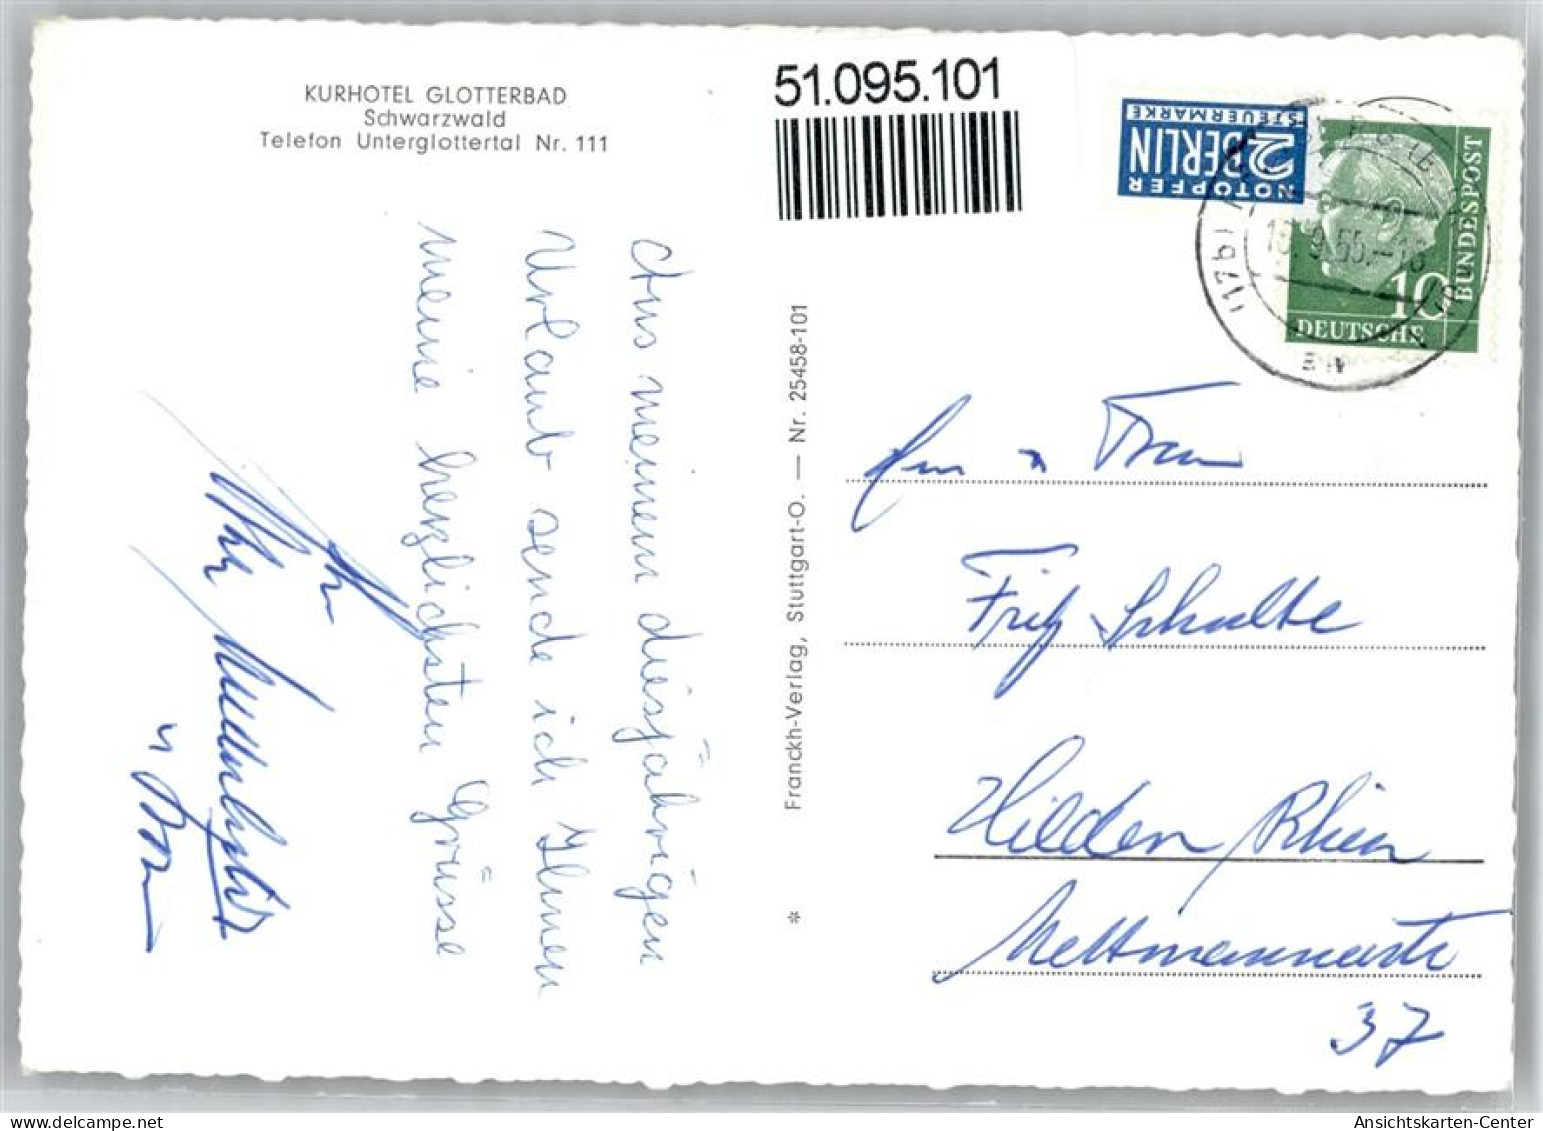 KURHOTEL GLOTTERBAD
Schwarzwald
Telefon Unterglottertal Nr. 111
51.095.101
NOTOPFER
2 BERLIN
STEUERMARKE
DEUTSCHE
BUNDESPOST
10
(17b)
9.55.-18
Aus meinem diesjährigen
Urlaub sende ich Ihnen
meine herzlichsten Grüsse
Ihr
Franckh-Verlag, Stuttgart-O. — Nr. 25458-101
*
Frau
Fritz Schulte
Hilden/Rhein
Mettmannerstr
37
www.delcampe.net
Ansichtskarten-Center